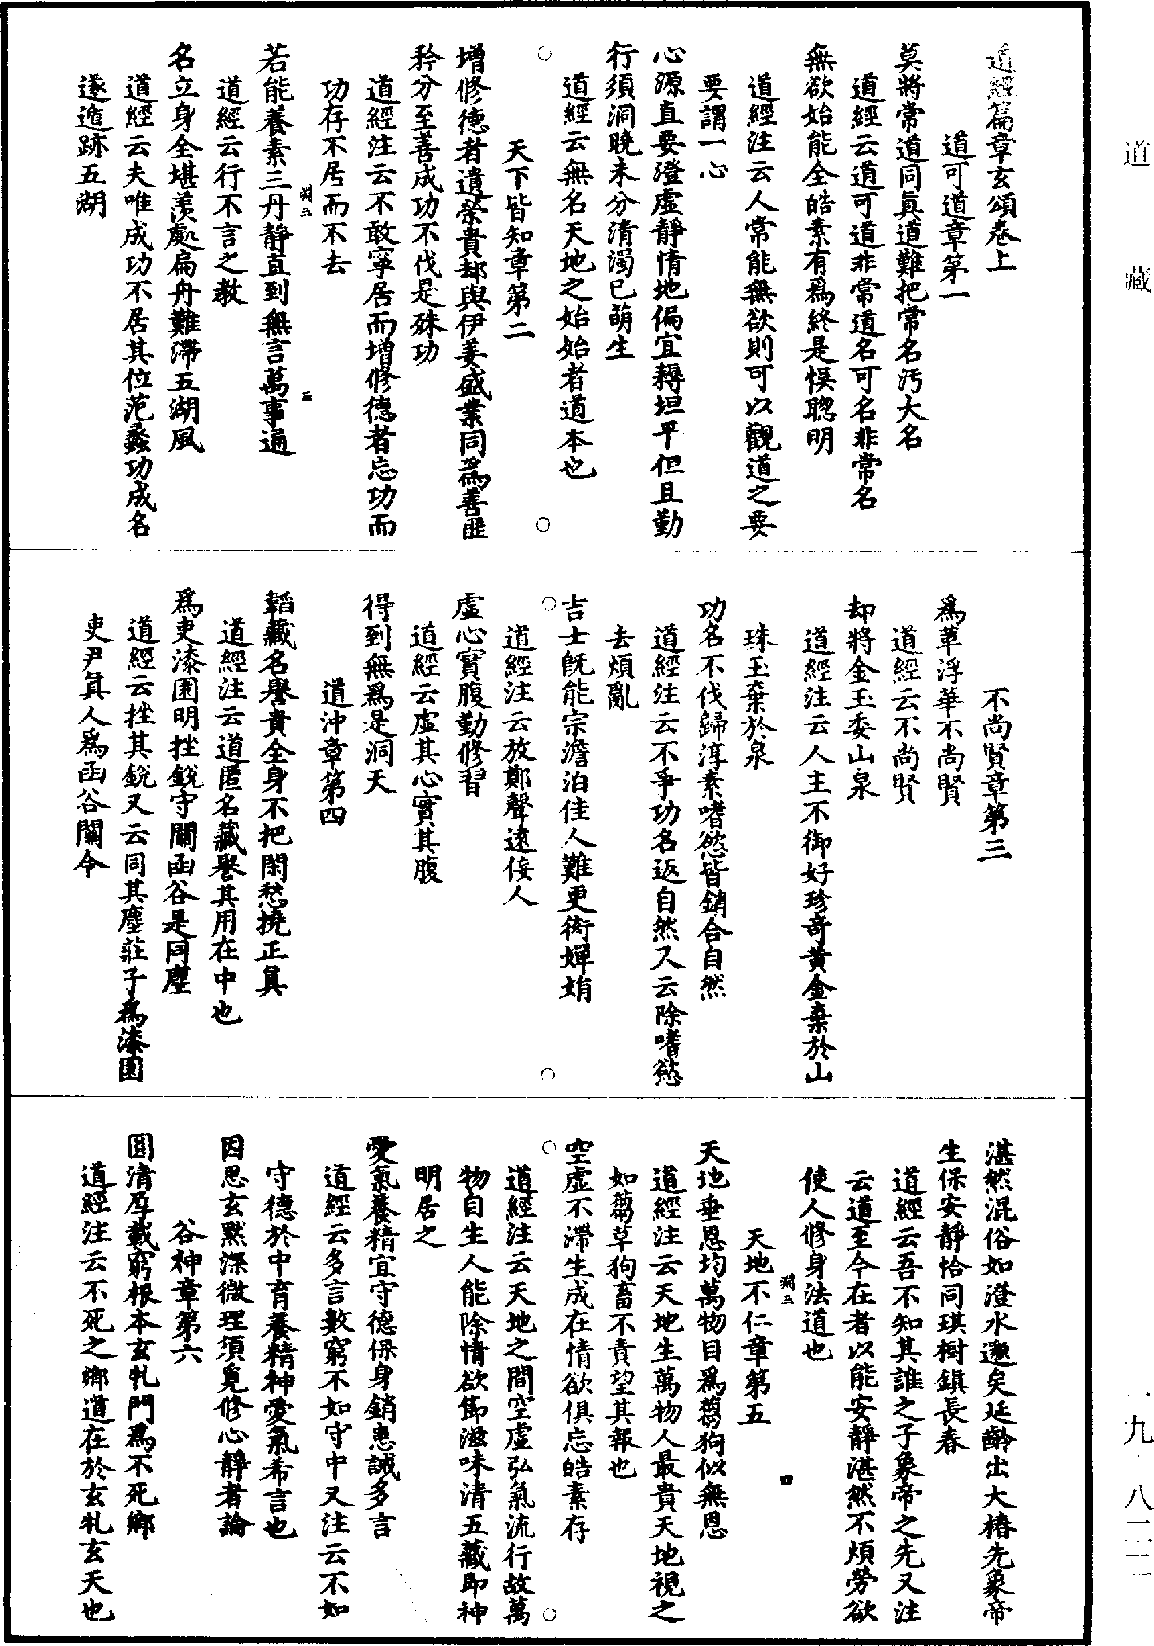 道經篇章玄頌卷上
道可道章第一
莫將常道同真道難把常名污大名
道經云道可道非常道名可名非常名
無欲始能全皓素有為終是悞聦明
道經注云人常能無欲則可以觀道之要
要謂一心
心源直要澄虛靜情地偏宜耨坦平但且勤
行須洞曉未分清濁已萌生
道經云無名天地之始始者道本也
天下皆知章第二
增修德者遺榮貴却與伊姜盛業同為善匪
矜分至善成功不伐是殊功
道經注云不敢寧居而增修德者忘功而
功存不居而不去
若能養素三丹靜直到無言萬事通
道經云行不言之教
名立身全堪羨處扁舟難滯五湖風
道經云夫唯成功不居其位范蠡功成名
遂遁跡五湖
不尚賢章第三
為華浮華不尚賢
道經云不尚賢
却將金玉委山泉
道經注云人主不御好珍奇黃金棄於山
珠玉棄於泉
功名不伐歸淳素嗜慾皆銷合自然
道經注云不爭功名返自然又云除嗜慾
去煩亂
吉士旣能宗澹泊佳人難更衒嬋娟
道經注云放鄭聲遠佞人
虛心實腹勤修習
道經云虛其心實其腹
得到無為是洞天
道沖章第四
韜藏名譽貴全身不把閑愁撓正真
道經注云道匿名藏譽其用在中也
為吏漆園明挫銳守關函谷是同塵
道經云挫其銳又云同其塵莊子為漆園
吏尹真人為函谷關令
湛然混俗如澄水邈矣延齡出大椿先象帝
生保安靜恰同琪樹鎮長春
道經云吾不知其誰之子象帝之先又注
云道至今在者以能安靜湛然不煩勞欲
使人修身法道也
天地不仁章第五
天地垂恩均萬物目為芻狗似無恩
道經注云天地生萬物人最貴天地視之
如芻草狗畜不責望其報也
空虛不滯生成在情欲俱忘皓素存
道經注云天地之間空虛弘氣流行故萬
物自生人能除情欲節滋味清五藏即神
明居之
愛氣養精宜守德保身銷患誡多言
道經云多言數窮不如守中又注云不如
守德於中育養精神愛氣希言也
因思玄默深微理須覓修心靜者論
谷神章第六
圓清厚載窮根本玄牝門為不死鄉
道經注云不死之鄉道在於玄牝玄天也
道
藏
一九·八二二